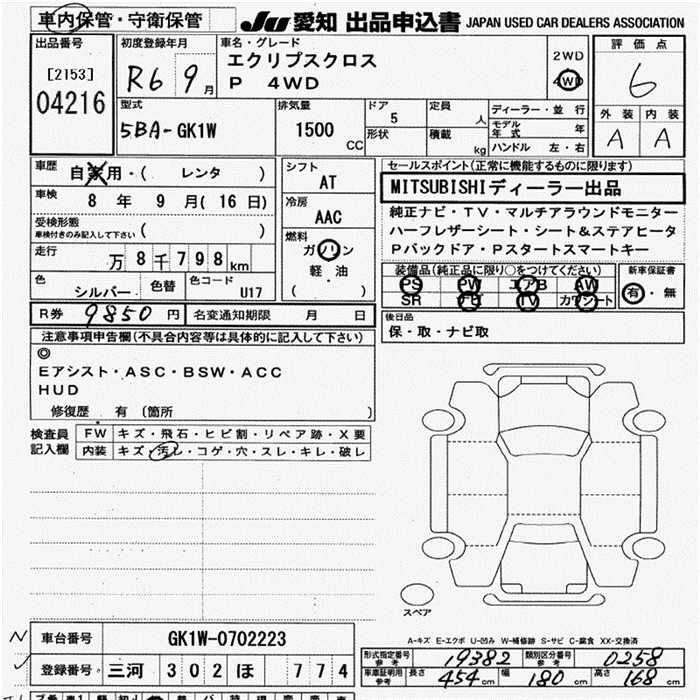 車内保管・守衛保管
JU 愛知 出品申込書 JAPAN USED CAR DEALERS ASSOCIATION
出品番号
[2153]
04216
初度登録年月
R6 9月
車名・グレード
エクリプスクロス
P 4WD
2WD
4WD
評価点
6
外装 内装
A A
型式
5BA-GK1W
排気量
1500 CC
ドア
5
形状
定員 人
積載 kg
ディーラー・並行
モデル年式 年
ハンドル 左・右
車歴 自家用・( レンタ )
車検 8年 9月(16日)
受検形態
車検付きのみ記入して下さい ( )
走行 万8千798km
色 シルバー 色替 色コード U17
シフト
AT
冷房
AAC
燃料
ガソリン
軽・油
( )
セールスポイント(正常に機能するものに限ります)
MITSUBISHIディーラー出品
純正ナビ・TV・マルチアラウンドモニター
ハーフレザーシート・シート&ステアヒータ
Pバックドア・Pスタートスマートキー
装備品(純正品に限り○をつけてください)
PS PW エアB AW
SR ナビ TV カワシート
新車保証書
有・無
R券 9850円 名変通知期限 月 日
後日品
保・取・ナビ取
注意事項申告欄(不具合内容等は具体的に記入して下さい)
◎
Eアシスト・ASC・BSW・ACC
HUD
修復歴 有 (箇所 )
検査員記入欄
FW キズ・飛石・ヒビ割・リペア跡・X要
内装 キズ・汚レ・コゲ・穴・スレ・キレ・破レ
スペア
A-キズ E-エクボ U-凹み W-補修跡 S-サビ C-腐食 XX-交換済
N 車台番号 GK1W-0702223
登録番号 三河 302 ほ 774
形式指定番号 参考 19382 類別区分番号 参考 0258
車庫証明用 参考 長さ 454cm 幅 180cm 高さ 168cm